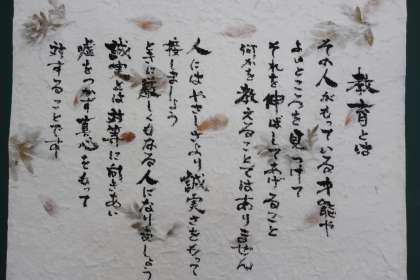 教育とは
その人がもっている才能や
よいところを見つけて
それを伸ばしてあげること
何かを教えることではありません
人にはやさしさより誠実さをもって
接しましょう
ときに厳しくもなる人になりましょう
誠実とは対等に向きあい
嘘をつかず真心をもって
対することです